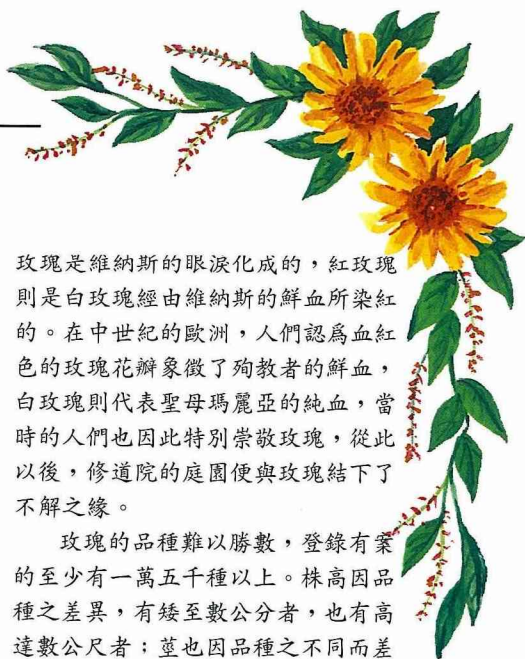 玫瑰是維納斯的眼淚化成的，紅玫瑰
則是白玫瑰經由維納斯的鮮血所染紅
的。在中世紀的歐洲，人們認爲血紅
色的玫瑰花瓣象徵了殉教者的鮮血，
白玫瑰則代表聖母瑪麗亞的純血，當
時的人們也因此特別崇敬玫瑰，從此
以後，修道院的庭園便與玫瑰結下了
不解之緣。
玫瑰的品種難以勝數，登錄有案
的至少有一萬五千種以上。株高因品
種之差異，有矮至數公分者，也有高
達數公尺者；莖也因品種之不同而差